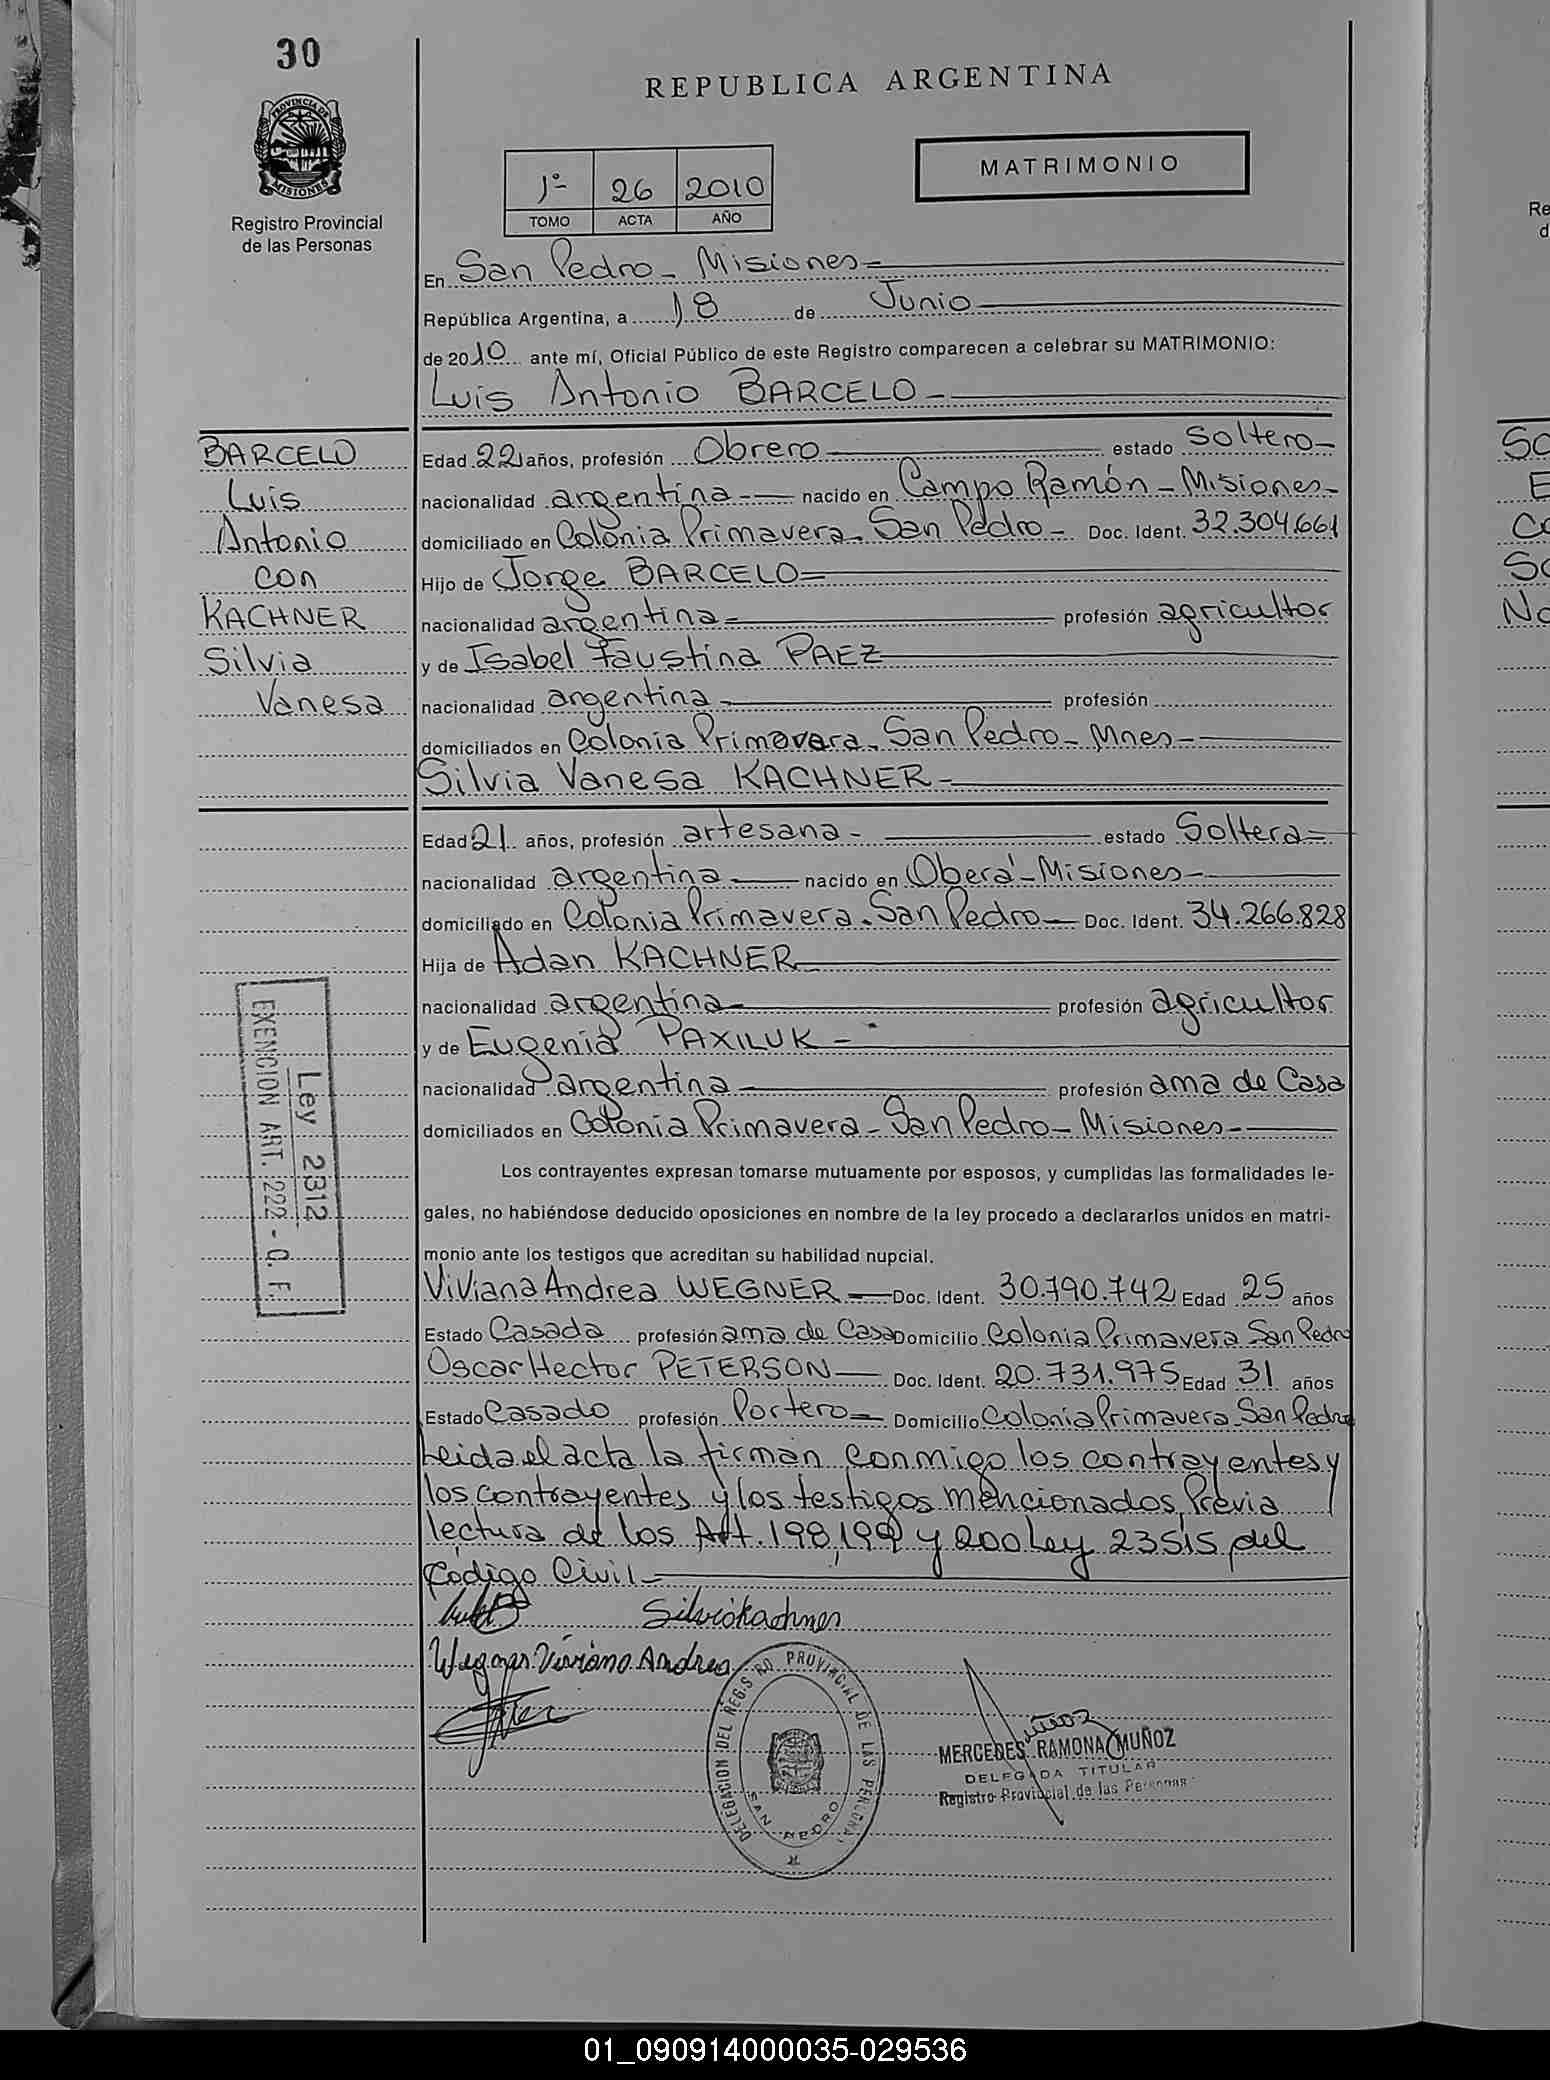 30
PROVINCIA DE
MISIONES
Registro Provincial
de las Personas
REPUBLICA ARGENTINA
MATRIMONIO
1º 26 2010
TOMO ACTA AÑO
En San Pedro - Misiones
República Argentina, a 18 de Junio
de 2010 ante mí, Oficial Público de este Registro comparecen a celebrar su MATRIMONIO:
Luis Antonio BARCELO
BARCELO
Luis
Antonio
con
KACHNER
Silvia
Vanesa
Edad 22 años, profesión Obrero estado Soltero
nacionalidad argentina nacido en Campo Ramón - Misiones
domiciliado en Colonia Primavera - San Pedro - Doc. Ident. 32.304.661
Hijo de Jorge BARCELO
nacionalidad argentina profesión agricultor
y de Isabel Faustina PAEZ
nacionalidad argentina profesión
domiciliados en Colonia Primavara - San Pedro - Mnes
Silvia Vanesa KACHNER
Edad 21 años, profesión artesana - estado Soltera
nacionalidad argentina nacido en Oberá - Misiones
domiciliado en Colonia Primavera - San Pedro Doc. Ident. 34.266.828
Hija de Adan KACHNER
nacionalidad argentina profesión agricultor
y de Eugenia PAXILUK
nacionalidad argentina profesión ama de Casa
domiciliados en Colonia Primavera - San Pedro - Misiones
Ley 2312
EXENCION ART. 222 - C. F.
Los contrayentes expresan tomarse mutuamente por esposos, y cumplidas las formalidades le-
gales, no habiéndose deducido oposiciones en nombre de la ley procedo a declararlos unidos en matri-
monio ante los testigos que acreditan su habilidad nupcial.
Viviana Andrea WEGNER Doc. Ident. 30.790.742 Edad 25 años
Estado Casada profesión ama de Casa Domicilio Colonia Primavera San Pedro
Oscar Hector PETERSON Doc. Ident. 20.731.975 Edad 31 años
Estado Casado profesión Portero Domicilio Colonia Primavera - San Pedro
Leida el acta la firman conmigo los contrayentes y
los contrayentes y los testigos mencionados, Previa
lectura de los Art. 198, 199 y 200 Ley 23515 del
Código Civil
Silvia Kachner
Wegner Viviana Andrea
DELEGACION DEL REGISRO PROVINCIAL DE LAS PERSONAS
SAN PEDRO
Muñoz
MERCEDES RAMONA MUÑOZ
DELEGADA TITULAR
Registro Provincial de las Personas
01_090914000035-029536